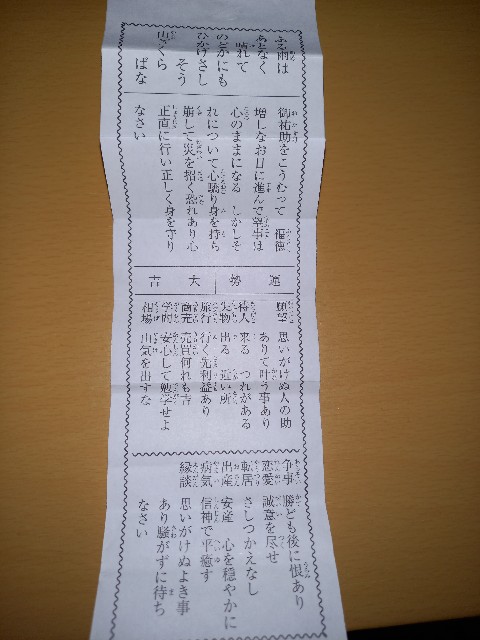 ふる雨は
あとなく
晴れて
のどかにも
ひかげさし
そう
山ざくら
ばな
御祐助をこうむって 福徳
増しなお日に進んで望事は
心のままになる しかしそ
れについて心驕り身を持ち
崩して災を招く恐れあり心
正直に行い正しく身を守り
なさい
運勢 大吉
願望 思いがけぬ人の助
ありて叶う事あり
待人 来る つれがある
失物 出る 近い所
旅行 行く先利益あり
商売 売買何れも吉
学問 安心して勉学せよ
相場 山気を出すな
争事 勝ども後に恨あり
恋愛 誠意を尽せ
転居 さしつかえなし
出産 安産 心を穏やかに
病気 信神で平癒す
縁談 思いがけぬよき事
あり騒がずに待ち
なさい